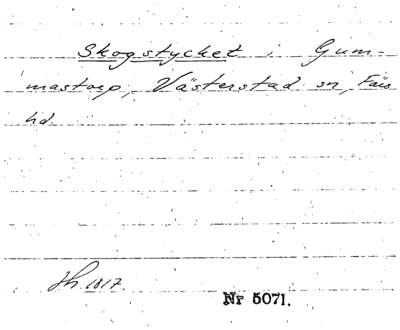 Skogstycket i Gum-
mastorp, Västerstad sn, Färs
hd.
Jh. 1817.
Nr 5071.